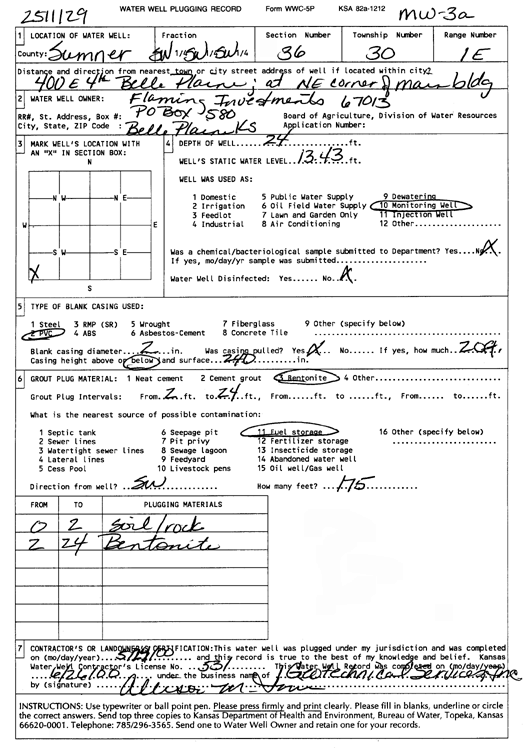 2511129 WATER WELL PLUGGING RECORD Form WWC-5P KSA 82a-1212 MW-3a
1 LOCATION OF WATER WELL: Fraction Section Number Township Number Range Number
County: Sumner SW 1/4 SW 1/4 SW 1/4 36 30 1E
Distance and direction from nearest town or city street address of well if located within city?
400 E 4th Belle Plaine; at NE corner of main bldg
2 WATER WELL OWNER: Flaming Investments 67013
RR#, St. Address, Box #: PO Box 580 Board of Agriculture, Division of Water Resources
City, State, ZIP Code : Belle Plaine KS Application Number:
3 MARK WELL'S LOCATION WITH AN "X" IN SECTION BOX:
N
N W N E
W E
S W S E
X
S
4 DEPTH OF WELL...24...ft.
WELL'S STATIC WATER LEVEL...13.43...ft.
WELL WAS USED AS:
1 Domestic 5 Public Water Supply 9 Dewatering
2 Irrigation 6 Oil Field Water Supply 10 Monitoring Well
3 Feedlot 7 Lawn and Garden Only 11 Injection Well
4 Industrial 8 Air Conditioning 12 Other
Was a chemical/bacteriological sample submitted to Department? Yes....No X
If yes, mo/day/yr sample was submitted
Water Well Disinfected: Yes...... No X
5 TYPE OF BLANK CASING USED:
1 Steel 3 RMP (SR) 5 Wrought 7 Fiberglass 9 Other (specify below)
2 PVC 4 ABS 6 Asbestos-Cement 8 Concrete Tile
Blank casing diameter...2...in. Was casing pulled? Yes X No...... If yes, how much
Casing height above or below land surface...240...in.
6 GROUT PLUG MATERIAL: 1 Neat cement 2 Cement grout 3 Bentonite 4 Other
Grout Plug Intervals: From..2..ft. to..24..ft., From......ft. to ......ft., From...... to......ft.
What is the nearest source of possible contamination:
1 Septic tank 6 Seepage pit 11 Fuel storage 16 Other (specify below)
2 Sewer lines 7 Pit privy 12 Fertilizer storage
3 Watertight sewer lines 8 Sewage lagoon 13 Insecticide storage
4 Lateral lines 9 Feedyard 14 Abandoned water well
5 Cess Pool 10 Livestock pens 15 Oil well/Gas well
Direction from well? SW How many feet? 175
FROM TO PLUGGING MATERIALS
0 2 Soil/rock
2 24 Bentonite
7 CONTRACTOR'S OR LANDOWNER'S CERTIFICATION: This water well was plugged under my jurisdiction and was completed
on (mo/day/year) 5/29/00 and this record is true to the best of my knowledge and belief. Kansas
Water Well Contractor's License No. 531 This Water Well Record was completed on (mo/day/year)
6/26/00 under the business name of Geotechnical Services Inc
by (signature)
INSTRUCTIONS: Use typewriter or ball point pen. Please press firmly and print clearly. Please fill in blanks, underline or circle
the correct answers. Send top three copies to Kansas Department of Health and Environment, Bureau of Water, Topeka, Kansas
66620-0001. Telephone: 785/296-3565. Send one to Water Well Owner and retain one for your records.